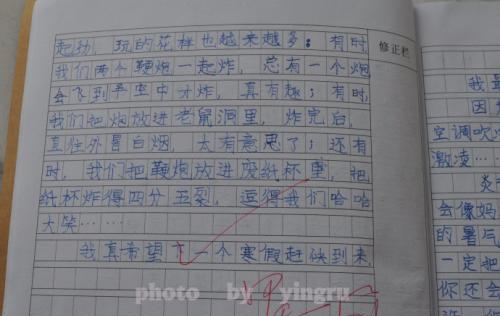 起劲，玩的花样也越来越多；有时
我们两个鞭炮一起炸，总有一个炮
会飞到半空中才炸，真有趣；有时，
我们把炮放进老鼠洞里，炸完后，
直往外冒白烟，太有意思了；还有
时，我们把鞭炮放进废纸杯里，把
纸杯炸得四分五裂，逗得我们哈哈
大笑……
我真希望下一个寒假赶快到来
修正栏
我
因
空调吹
激凌…
炎
会像妈
的暑气
一定把
你还会
photo by yingru